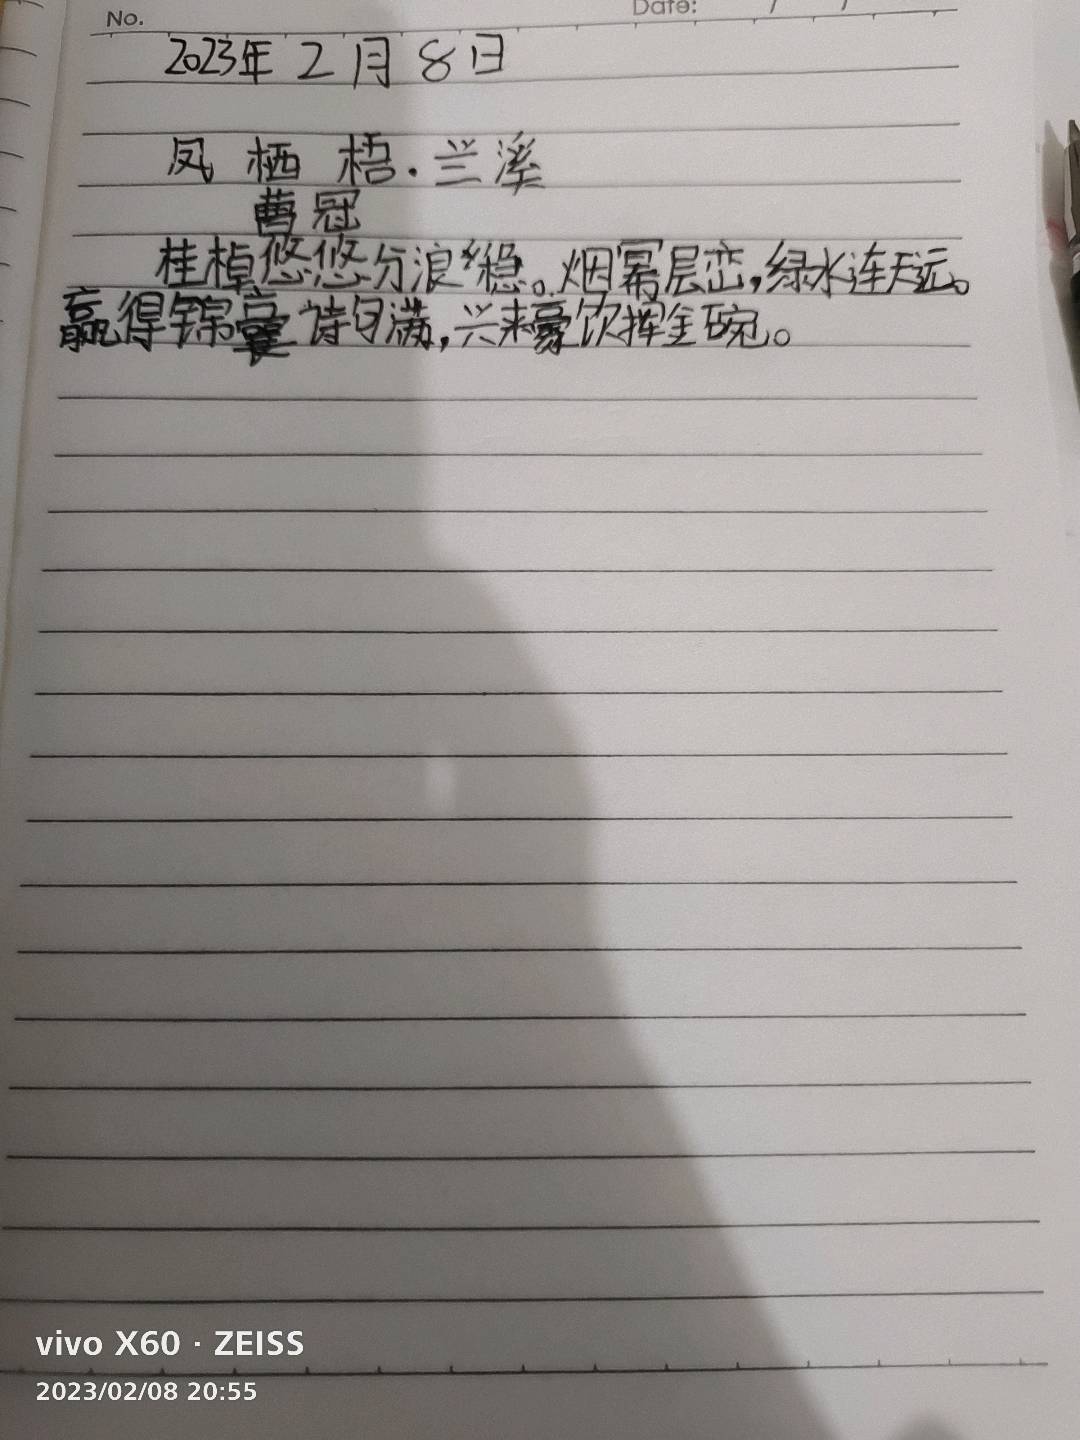 No.
Date: / /
2023年2月8日
凤栖梧·兰溪
曹冠
桂棹悠悠分浪稳。烟幂层峦,绿水连天远。
赢得锦囊诗句满,兴来豪饮挥金碗。
vivo X60 · ZEISS
2023/02/08 20:55